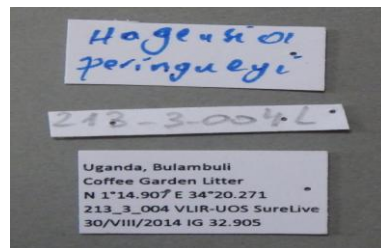 Hagensia
peringueyi
213-3-004.L
Uganda, Bulambuli
Coffee Garden Litter
N 1°14.907 E 34°20.271
213_3_004 VLIR-UOS SureLive
30/VIII/2014 IG 32.905